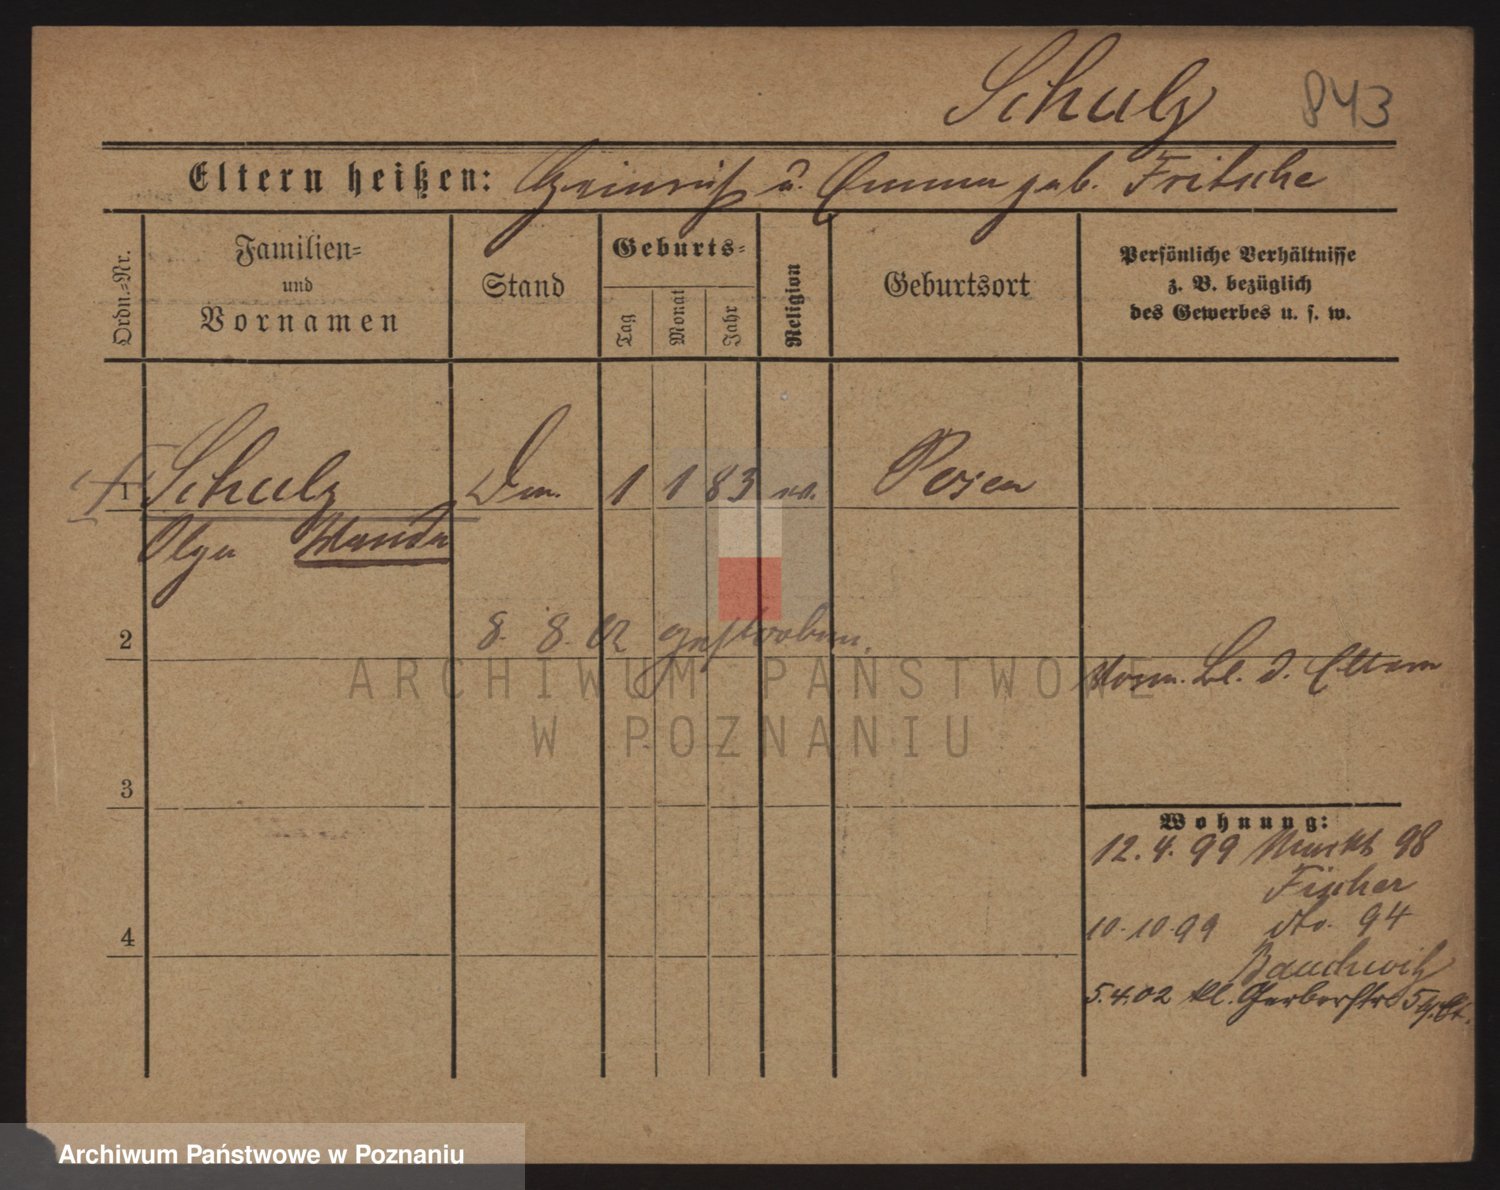 Schulz 843
Eltern heißen: Heinrich u. Emma geb. Fritsche
Ordn.-Nr.
Familien-
und
Vornamen
Stand
Geburts-
Tag
Monat
Jahr
Religion
Geburtsort
Persönliche Verhältnisse
z. B. bezüglich
des Gewerbes u. s. w.
1 Schulz 1 1 83 ev. Posen
Olga Wanda
2 8. 8. 02 gestorben.
Vorm. Bl. d. Eltern
ARCHIWUM PAŃSTWOWE
W POZNANIU
3
Wohnung:
12. 4. 99 Markt 98
Fischer
4 10. 10. 99 do. 94
Bauchwitz
5. 4. 02 kl. Gerberstr. 5
Archiwum Państwowe w Poznaniu